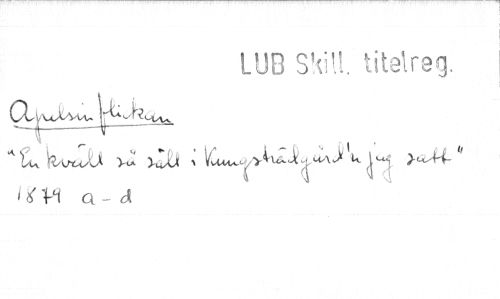 LUB Skill. titelreg.
Apelsinflickan
"En kväll så säll i Kungsträdgård'n jag satt"
1879 a-d